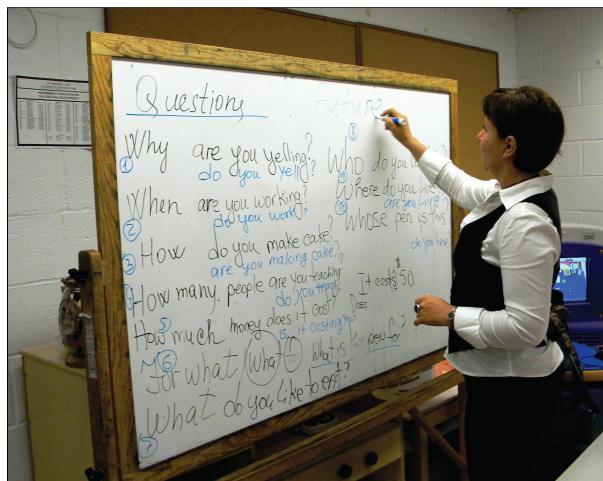 Questions
Future
Why are you yelling?
1 do you yell?
When are you working?
2 do you work?
How do you make cake?
3 are you making cake?
How many people are you teaching
4 do you teach
How much money does it cost?
5 is it costing
Does
For what What to What is pen for?
6
What do you like to eat?
7
8
Who do you
9
Where do you live?
are you living?
10
Whose pen is this
do you have
It costs $50
$